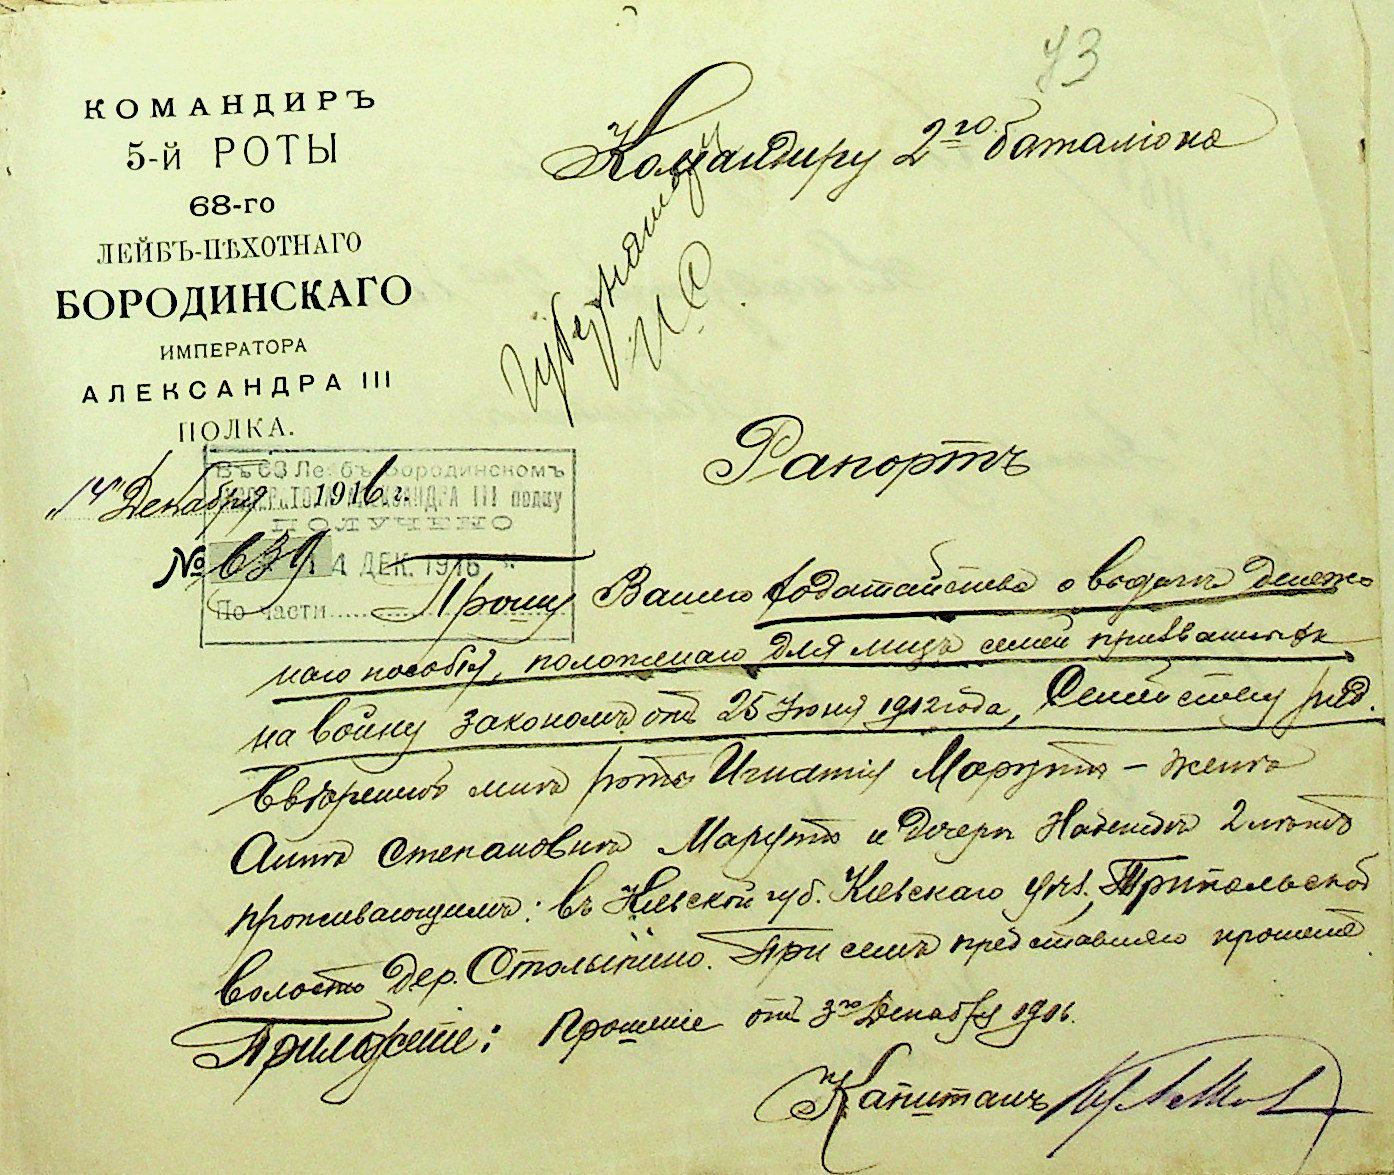 73
КОМАНДИРЪ
5-й РОТЫ
68-го
ЛЕЙБЪ-ПѢХОТНАГО
БОРОДИНСКАГО
ИМПЕРАТОРА
АЛЕКСАНДРА III
ПОЛКА.
Командиру 2го баталіона
Губернатору
Рапортъ
"14" Декабря 1916 г.
№ 639
Въ 68 Лейбъ-Бородинскомъ
ИМПЕРАТОРА АЛЕКСАНДРА III полку
ПОЛУЧЕНО
14 ДЕК. 1916
По части
Прошу Вашего ходатайства о выдачѣ денеж-
наго пособія, положенаго для лицъ семей призванныхъ
на войну закономъ отъ 25 Іюня 1912 года, Семейству ряд.
ввѣренной мнѣ роты Игнатія Марутъ – женѣ
Аннѣ Степановнѣ Марутъ и дочери Надеждѣ 2 лѣтъ
проживающимъ: въ Кіевской губ. Кіевскаго уѣз., Трипольской
волости дер. Столыпино. При семъ представляю прошеніе
Приложеніе: Прошеніе отъ 3го Декабря 1916.
Капитанъ